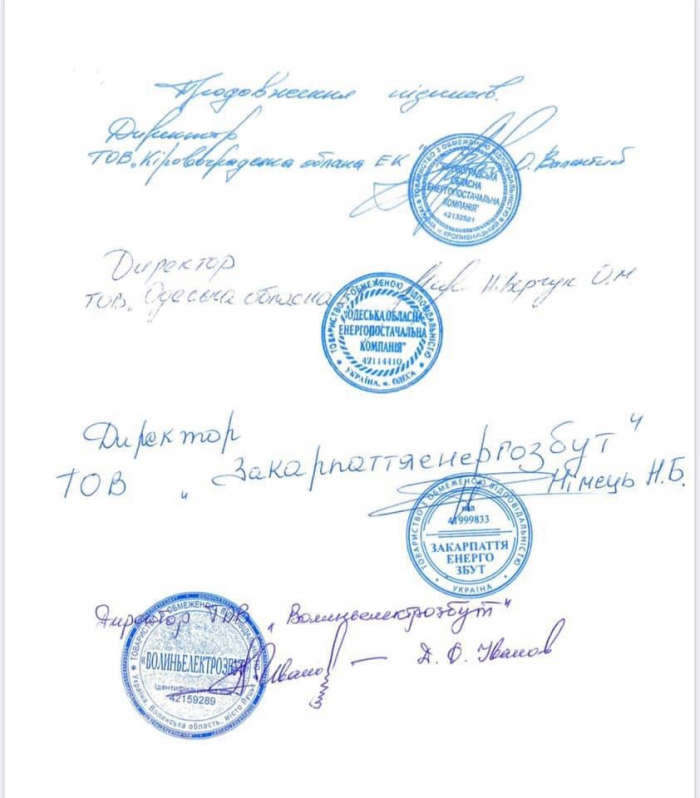 Продовження підписів.
Директор
ТОВ „Кіровоградська обласна ЕК"
О. Валентий
ТОВАРИСТВО З ОБМЕЖЕНОЮ ВІДПОВІДАЛЬНІСТЮ
ОБЛАСНА
ЕНЕРГОПОСТАЧАЛЬНА
КОМПАНІЯ"
Директор
ТОВ „Одеська обласна
О.М
ТОВАРИСТВО З ОБМЕЖЕНОЮ ВІДПОВІДАЛЬНІСТЮ
"ОДЕСЬКА ОБЛАСНА
ЕНЕРГОПОСТАЧАЛЬНА
КОМПАНІЯ"
42114410
УКРАЇНА, м. ОДЕСА
Директор
ТОВ „Закарпаттяенергозбут"
Німець Н.Б.
ТОВАРИСТВО З ОБМЕЖЕНОЮ ВІДПОВІДАЛЬНІСТЮ
41999833
ЗАКАРПАТТЯ
ЕНЕРГО
ЗБУТ
УКРАЇНА
Директор ТОВ „Волиньелектрозбут"
Іванов — Д. О. Іванов
ТОВАРИСТВО З ОБМЕЖЕНОЮ
«ВОЛИНЬЕЛЕКТРОЗБУТ»
42159289
Україна, Волинська область, місто Луцьк